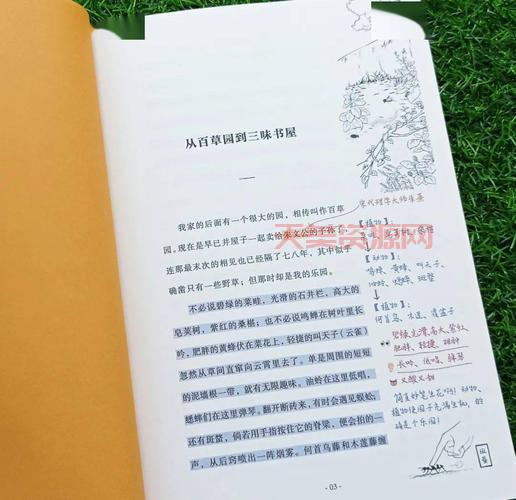 从百草园到三味书屋
我家的后面有一个很大的园，相传叫作百草
园。现在是早已并屋子一起卖给朱文公的子孙了，
连那最末次的相见也已经隔了七八年，其中似乎
确凿只有一些野草；但那时却是我的乐园。
不必说碧绿的菜畦，光滑的石井栏，高大的
皂荚树，紫红的桑椹；也不必说鸣蝉在树叶里长
吟，肥胖的黄蜂伏在菜花上，轻捷的叫天子（云雀）
忽然从草间直窜向云霄里去了。单是周围的短短
的泥墙根一带，就有无限趣味。油蛉在这里低唱，
蟋蟀们在这里弹琴。翻开断砖来，有时会遇见蜈蚣；
还有斑蝥，倘若用手指按住它的脊梁，便会拍的一
声，从后窍喷出一阵烟雾。何首乌藤和木莲藤缠
03
宋代理学大师朱熹
【植物】
【动物】
鸣蝉、黄蜂、叫天子、
油蛉、蟋蟀、斑蝥
【植物】
何首乌、木莲、覆盆子
碧绿、光滑、高大、紫红
肥胖、轻捷、
长吟、低唱、弹琴
又酸又甜
简直妙笔生花啊！动物、
植物使园子充满生机，的
确是个乐园！
天美资源网